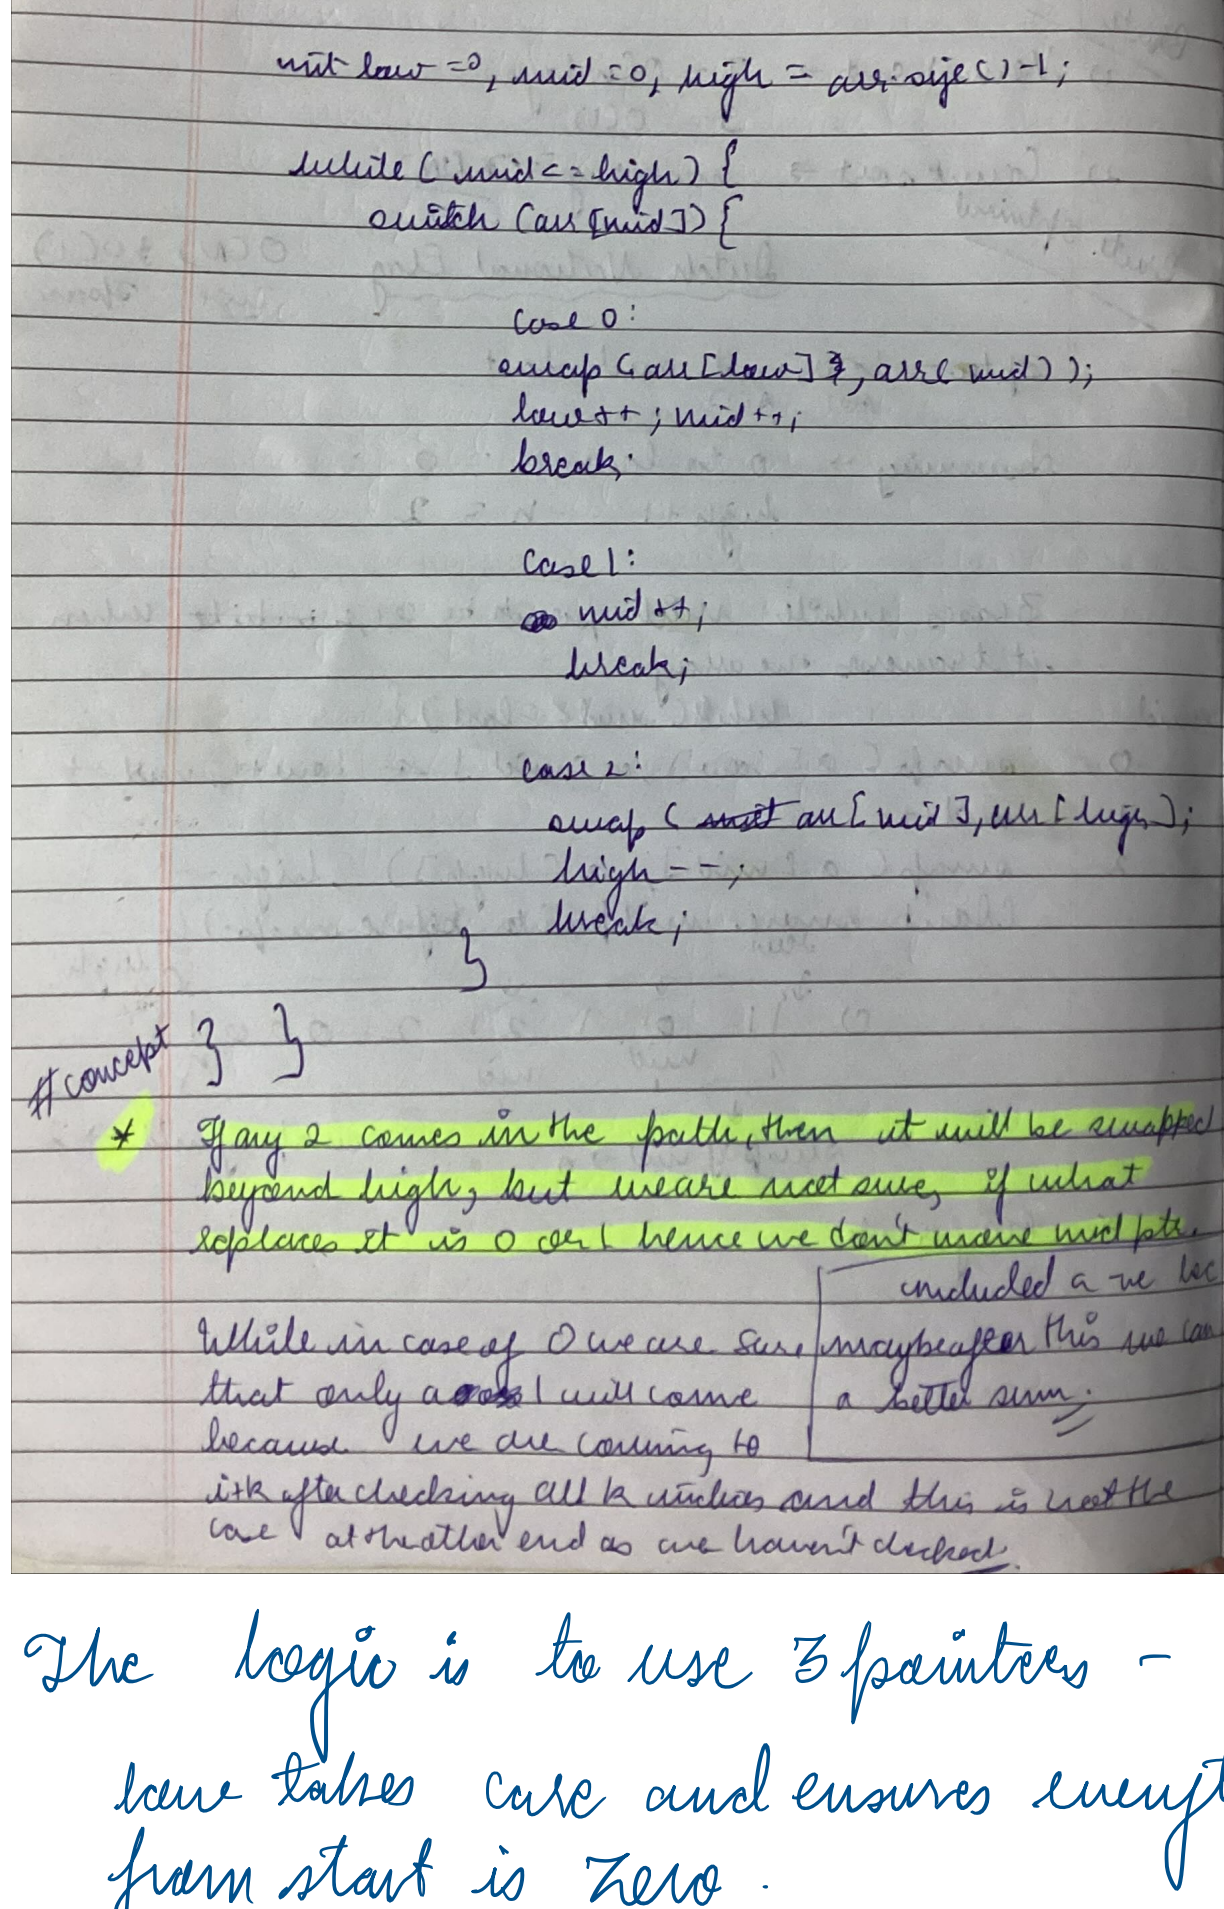 int low = 0, mid = 0, high = arr.size() - 1;
while (mid <= high) {
switch (arr[mid]) {
case 0:
swap (arr[low], arr[mid));
low++ ; mid++;
break;
case 1:
mid ++;
break;
case 2:
swap ( arr[mid], arr[high];
high --;
break;
}
#concept } }
* If any 2 comes in the path, then it will be swapped
beyond high, but we are not sure, if what
replaces it is 0 or 1 hence we don't move mid ptr.
included a -ve
While in case of 0 we are sure maybe after this we can
that only a 1 will come a better sum.
because we are coming to
i+k after checking all k indices and this is not the
case at the other end as we haven't checked.
The logic is to use 3 pointers -
low takes care and ensures everyt
from start is zero.